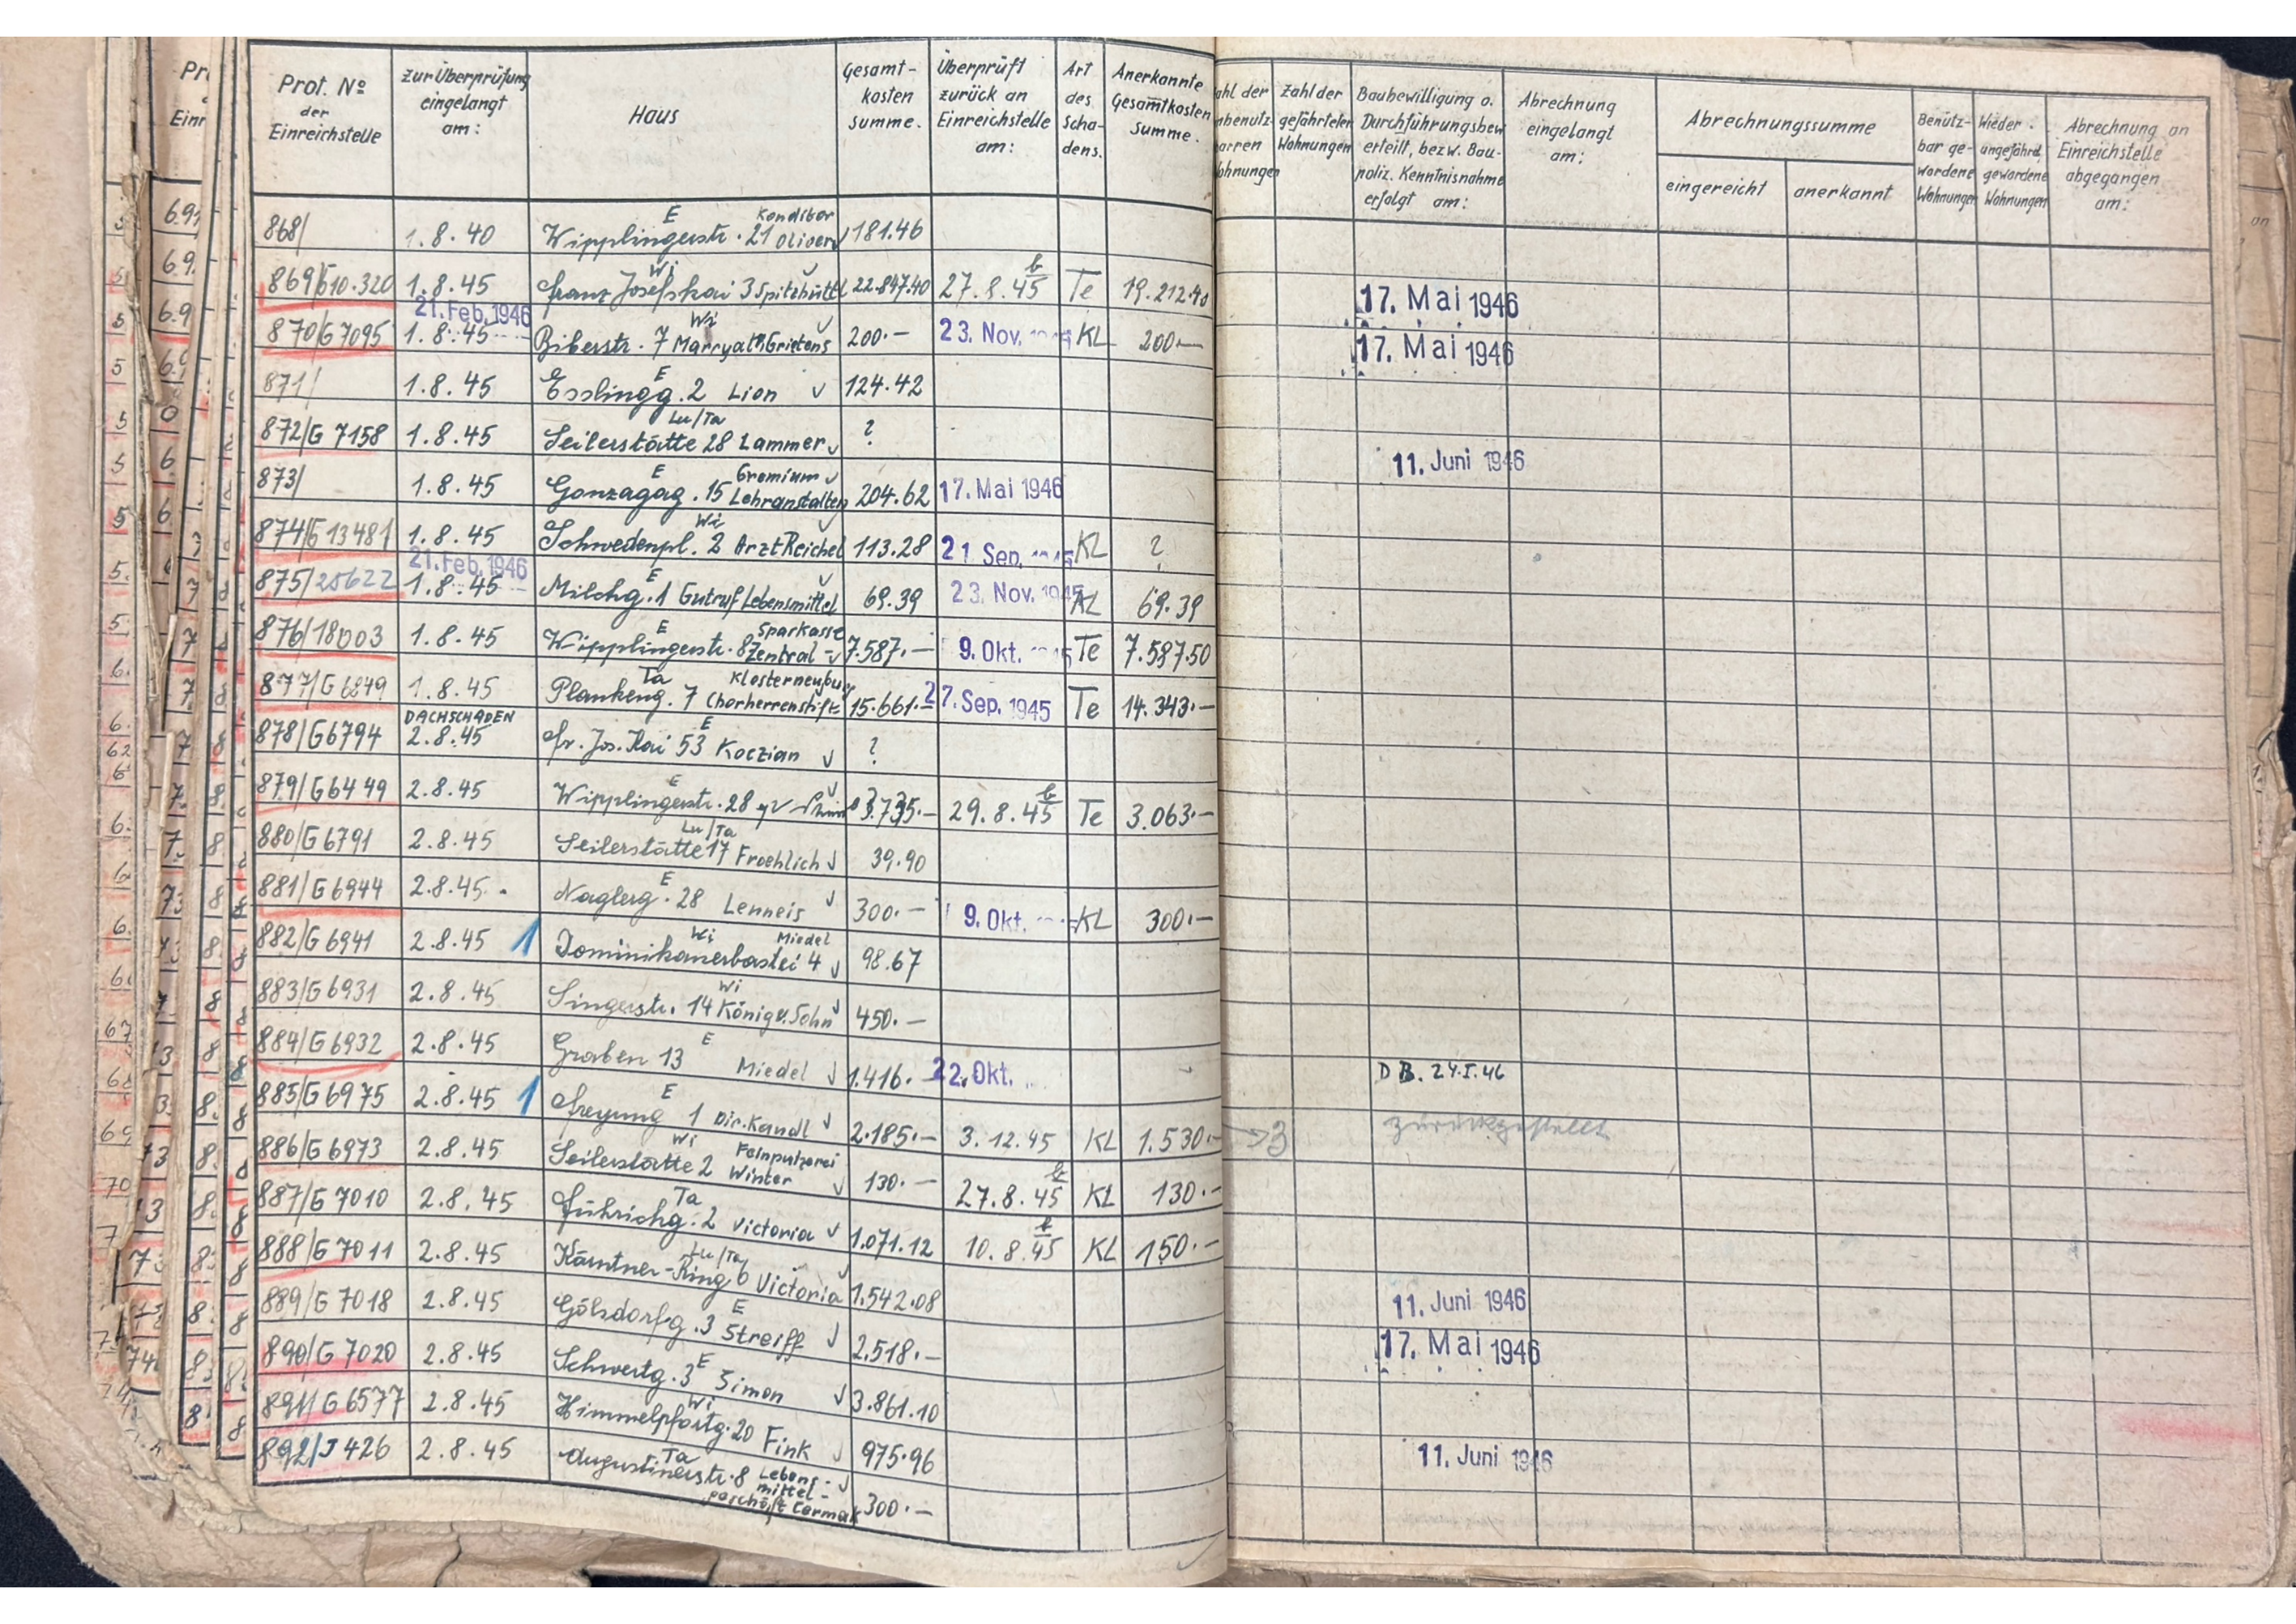 Prot. No der Einreichstelle | zur Überprüfung eingelangt am: | Haus | Gesamt-kosten summe. | Überprüft zurück an Einreichstelle am: | Art des Scha-dens. | Anerkannte Gesamtkosten Summe. | zahl der gefährdeten Wohnungen | Baubewilligung o. Durchführungsbew erteilt, bezw. Bau-poliz. Kenntnisnahme erfolgt am: | Abrechnung eingelangt am: | Abrechnungssumme eingereicht | anerkannt | Benütz-bar ge-wordene Wohnungen | Wieder ungefährd. gewordene Wohnungen | Abrechnung an Einreichstelle abgegangen am:
868/ | 1.8.40 | Wipplingerstr. 21 E | 181.46
869/G10.320 | 1.8.45 | Franz Josefskai 3 Wi Spitzhüttl | 22.847.40 | 27.8.45 | Te | 19.212.40 | 17. Mai 1946
870/G7095 | 21. Feb. 1946 1.8.45 | Biberstr. 7 Wi | 200.— | 23. Nov. | KL | 200.— | 17. Mai 1946
871/ | 1.8.45 | Esslingg. 2 E Lion | 124.42
872/G 7158 | 1.8.45 | Seilerstätte 28 Lu/Ta Lammer | ? | 11. Juni 1946
873/ | 1.8.45 | Gonzagag. 15 E Gremium Lehranstalten | 204.62 | 17. Mai 1946
874/G13481 | 1.8.45 | Schwedenpl. 2 Wi Arzt Reichel | 113.28 | 21. Sep. | KL | ?
875/25622 | 21. Feb. 1946 1.8.45 | Milchg. 1 E Gutruf Lebensmittel | 69.39 | 23. Nov. 1945 | KL | 69.39
876/18003 | 1.8.45 | Wipplingerstr. 8 E Sparkasse Zentral- | 7.587.— | 9. Okt. | Te | 7.587.50
877/G6849 | 1.8.45 | Plankeng. 7 Ta Klosterneuburg Chorherrenstift | 15.661.— | 27. Sep. 1945 | Te | 14.343.—
878/G6794 | DACHSCHADEN 2.8.45 | Fr. Jos. Kai 53 E Koczian | ?
879/G6449 | 2.8.45 | Wipplingerstr. 28 E | 3.735.— | 29.8.45 | Te | 3.063.—
880/G6791 | 2.8.45 | Seilerstätte 17 Lu/Ta Froehlich | 39.90
881/G6944 | 2.8.45 | Naglerg. 28 E Lenneis | 300.— | 9. Okt. | KL | 300.—
882/G6941 | 2.8.45 1 | Dominikanerbastei 4 Wi Miedel | 98.67
883/G6931 | 2.8.45 | Singerstr. 14 Wi König u. Sohn | 450.—
884/G6932 | 2.8.45 | Graben 13 E Miedel | 1.416.— | 22. Okt. | DB. 24.I.46
885/G6975 | 2.8.45 1 | Freyung 1 E Dir. Kandl | 2.185.— | 3.12.45 | KL | 1.530.— | →3 | zurückgestellt
886/G6973 | 2.8.45 | Seilerstätte 2 Wi Feinputzerei Winter | 130.— | 27.8.45 | KL | 130.—
887/G7010 | 2.8.45 | Führichg. 2 Ta Victoria | 1.071.12 | 10.8.45 | KL | 150.—
888/G7011 | 2.8.45 | Kärntner-Ring 6 Lu/Ta Victoria | 1.542.08
889/G7018 | 2.8.45 | Gölsdorfg. 3 E Streiff | 2.518.— | 11. Juni 1946
890/G7020 | 2.8.45 | Schwertg. 3 E Simon | 3.861.10 | 17. Mai 1946
891/G6577 | 2.8.45 | Himmelpfortg. 20 Wi Fink | 975.96
892/J426 | 2.8.45 | Augustinerstr. 8 Ta Lebens-mittel-geschäft Cermak | 300.— | 11. Juni 1946